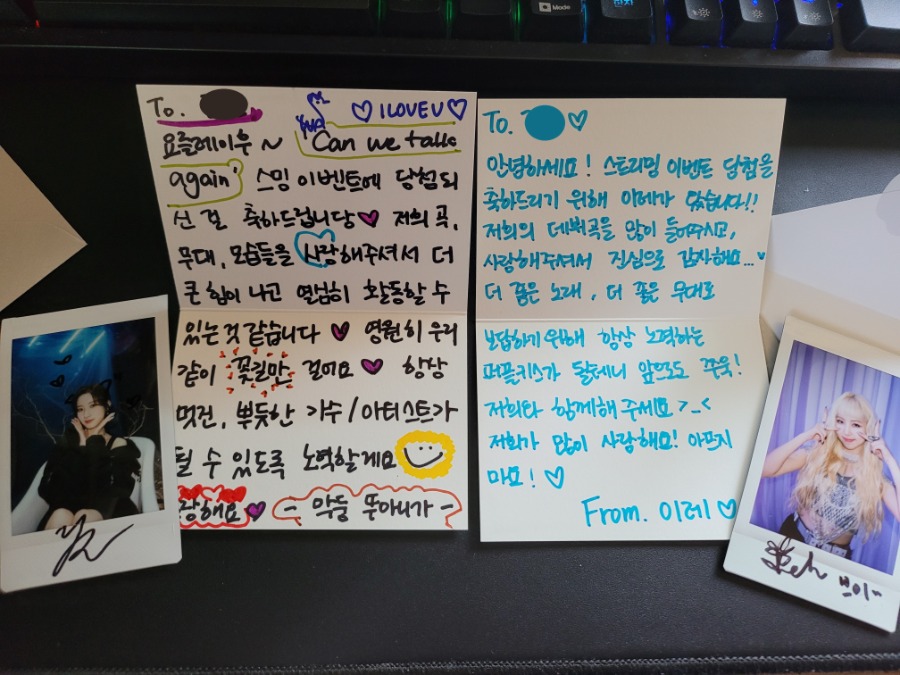 Mode
To.
♡ I LOVE U ♡
요즐레이우 ~ 'Can we talk
again' 스밍 이벤트에 당첨되
신 걸 축하드립니당 ♥ 저희 곡,
무대, 모습들을 사랑해주셔서 더
큰 힘이 나고 열심히 활동할 수
있는 것 같습니다 ♥ 영원히 우리
같이 꽃길만 걸어요 ♥ 항상
멋진, 뿌듯한 가수/아티스트가
될 수 있도록 노력할게요
랑해요 ♥ - 막둥 뚜아니가 -
To. ♡
안녕하세요! 스트리밍 이벤트 당첨을
축하드리기 위해 이레가 왔습니다!!
저희의 데뷔곡을 많이 들어주시고,
사랑해주셔서 진심으로 감사해요...♥
더 좋은 노래, 더 좋은 무대로
보답하기위해 항상 노력하는
퍼플키스가 될테니 앞으로도 쭈욱!
저희와 함께해 주세요 >_<
저희가 많이 사랑해요! 아프지
마요! ♡
From. 이레 ♡